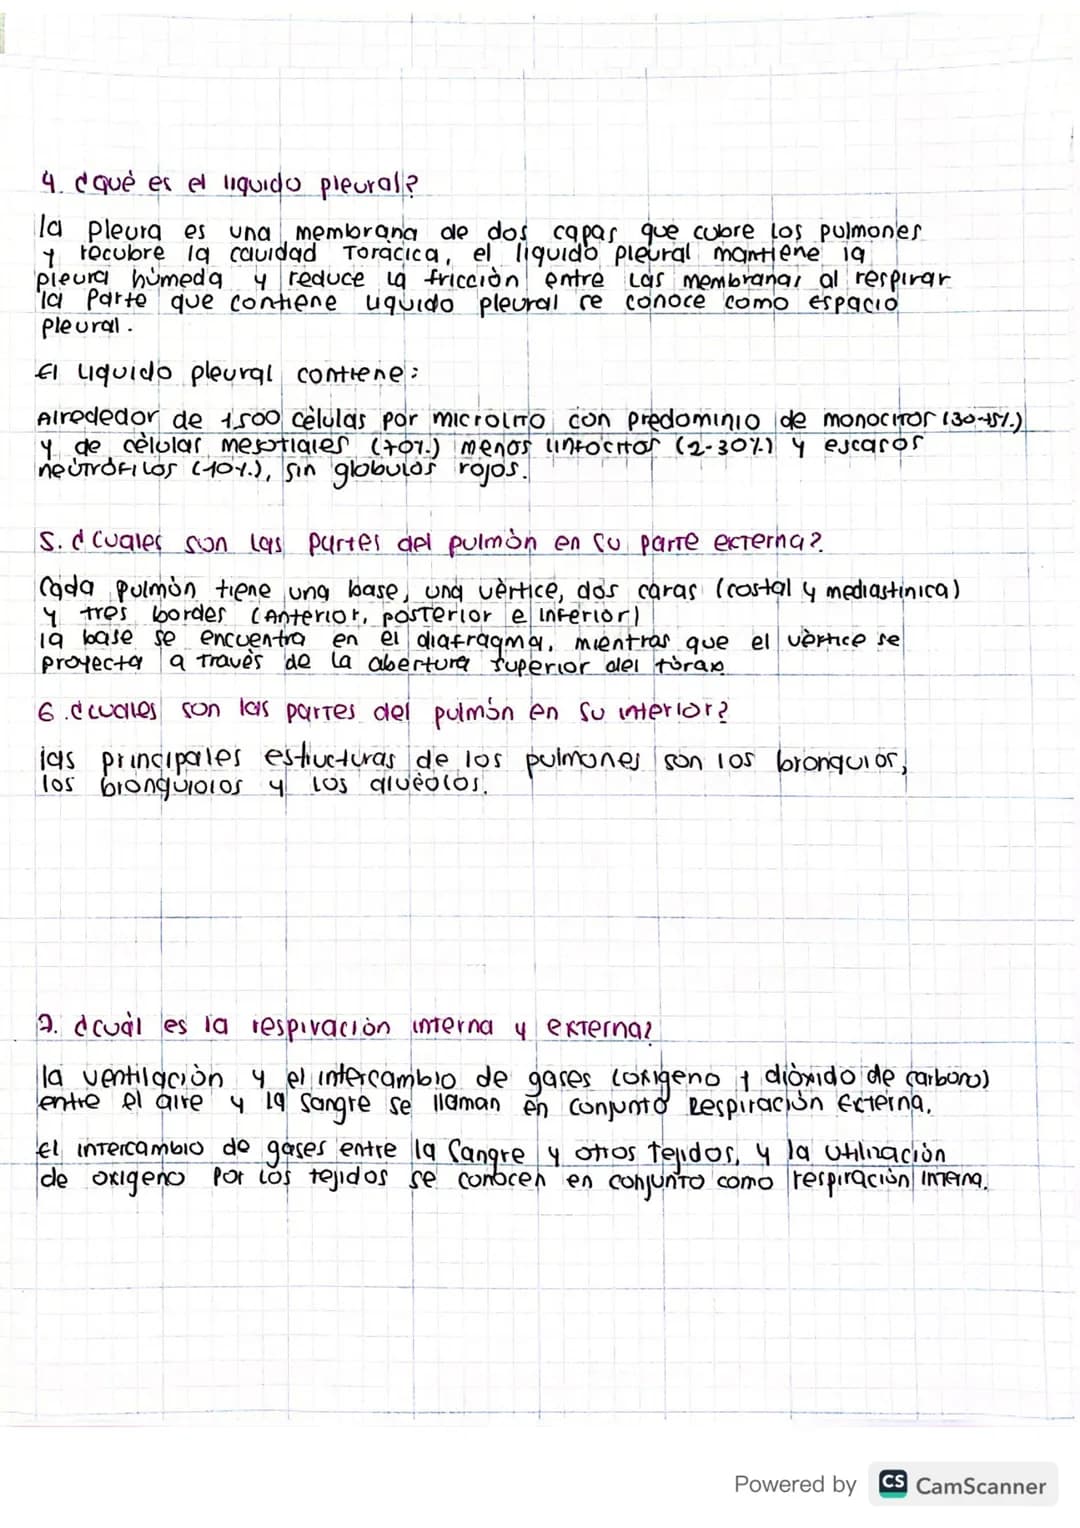 4. ¿què es el liquido pleural?
la pleura es una membrana de dos capas que cubre los pulmones
y recubre la cavidad Toràcica, el lìquido pleural mantiene la
pleura hùmeda y reduce la fricciòn entre las membranas al respirar
la Parte que contiene liquido pleural se conoce como espacio
pleural.
El liquido pleural contiene:
Alrededor de 1500 cèlulas por microlito con predominio de monocitos (30-75%)
y de cèlulas mesotiales (70%) menos linfocitos (2-30%) y escasos
neutròfilos (10%), sin globulos rojos.
5. ¿cuales son las partes del pulmòn en su parte externa?
Cada pulmòn tiene una base, una vèrtice, dos caras (costal y mediastinica)
y tres bordes (Anterior, posterior e inferior)
la base se encuentra en el diafragma, mientras que el vèrtice se
proyecta a travès de la abertura superior del tòrax
6. ¿cuales son las partes del pulmòn en su interior?
las principales estructuras de los pulmones son los bronquios,
los bronquiolos y los alvèolos.
7. ¿cuàl es la respiraciòn interna y externa?
la ventilaciòn y el intercambio de gases (oxigeno y diòxido de carbono)
entre el aire y la sangre se llaman en conjunto Respiraciòn Externa.
El intercambio de gases entre la Sangre y otros tejidos, y la utilización
de oxigeno Por los tejidos se conocen en conjunto como respiraciòn interna.
Powered by CS CamScanner